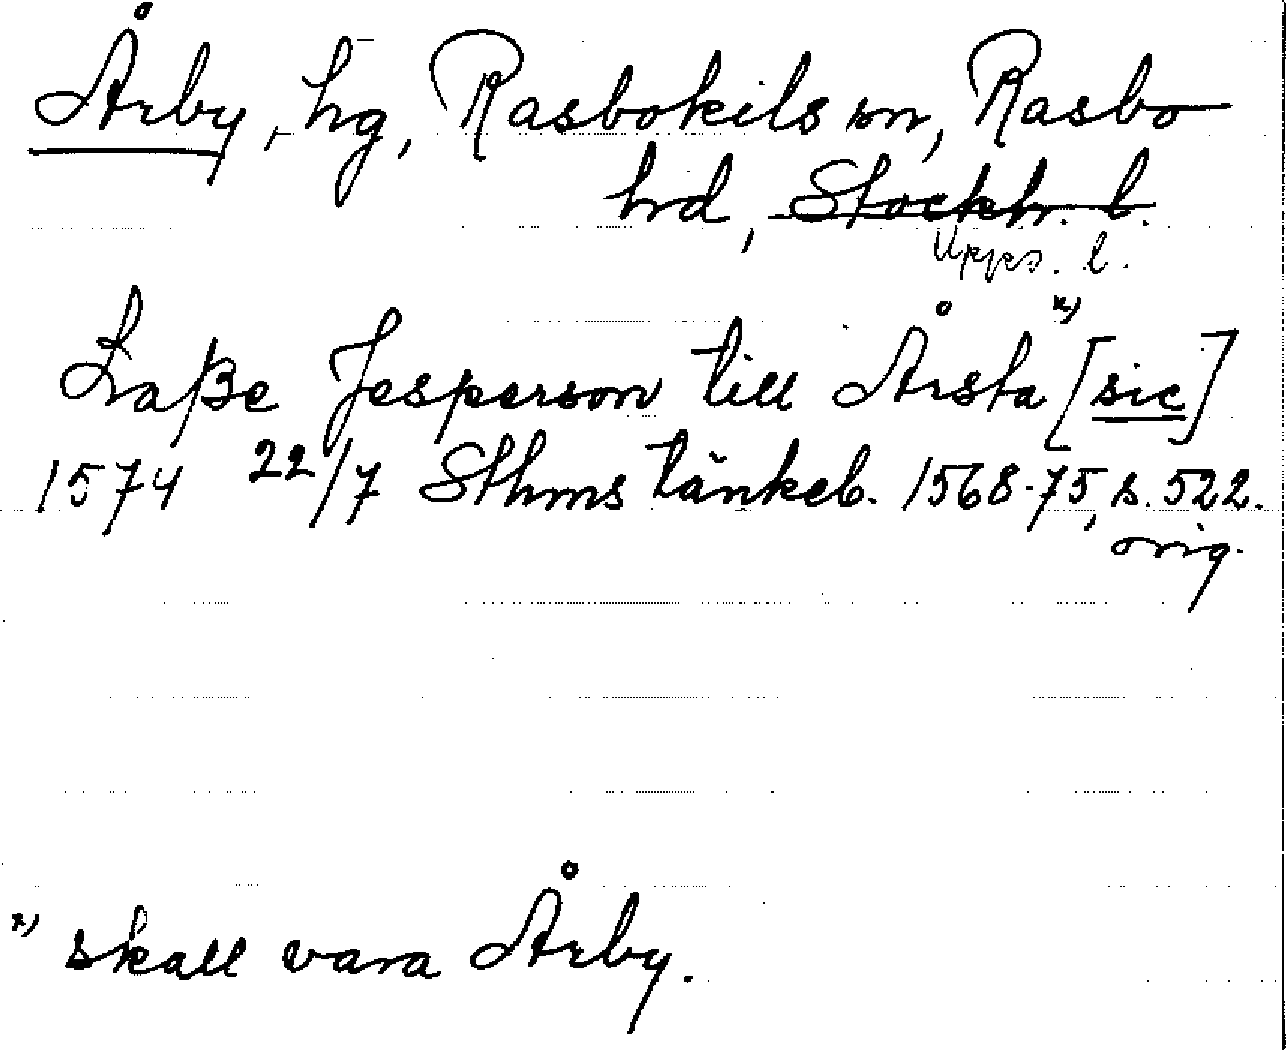 Årby, hg, Rasbokils sn, Rasbo
hrd, Stockh. l.
Upps. l.
Laße Jesperson till Årsta x) [sic]
1574 22/7 Sthms tänkeb. 1568-75, s. 522.
orig.
x) skall vara Årby.